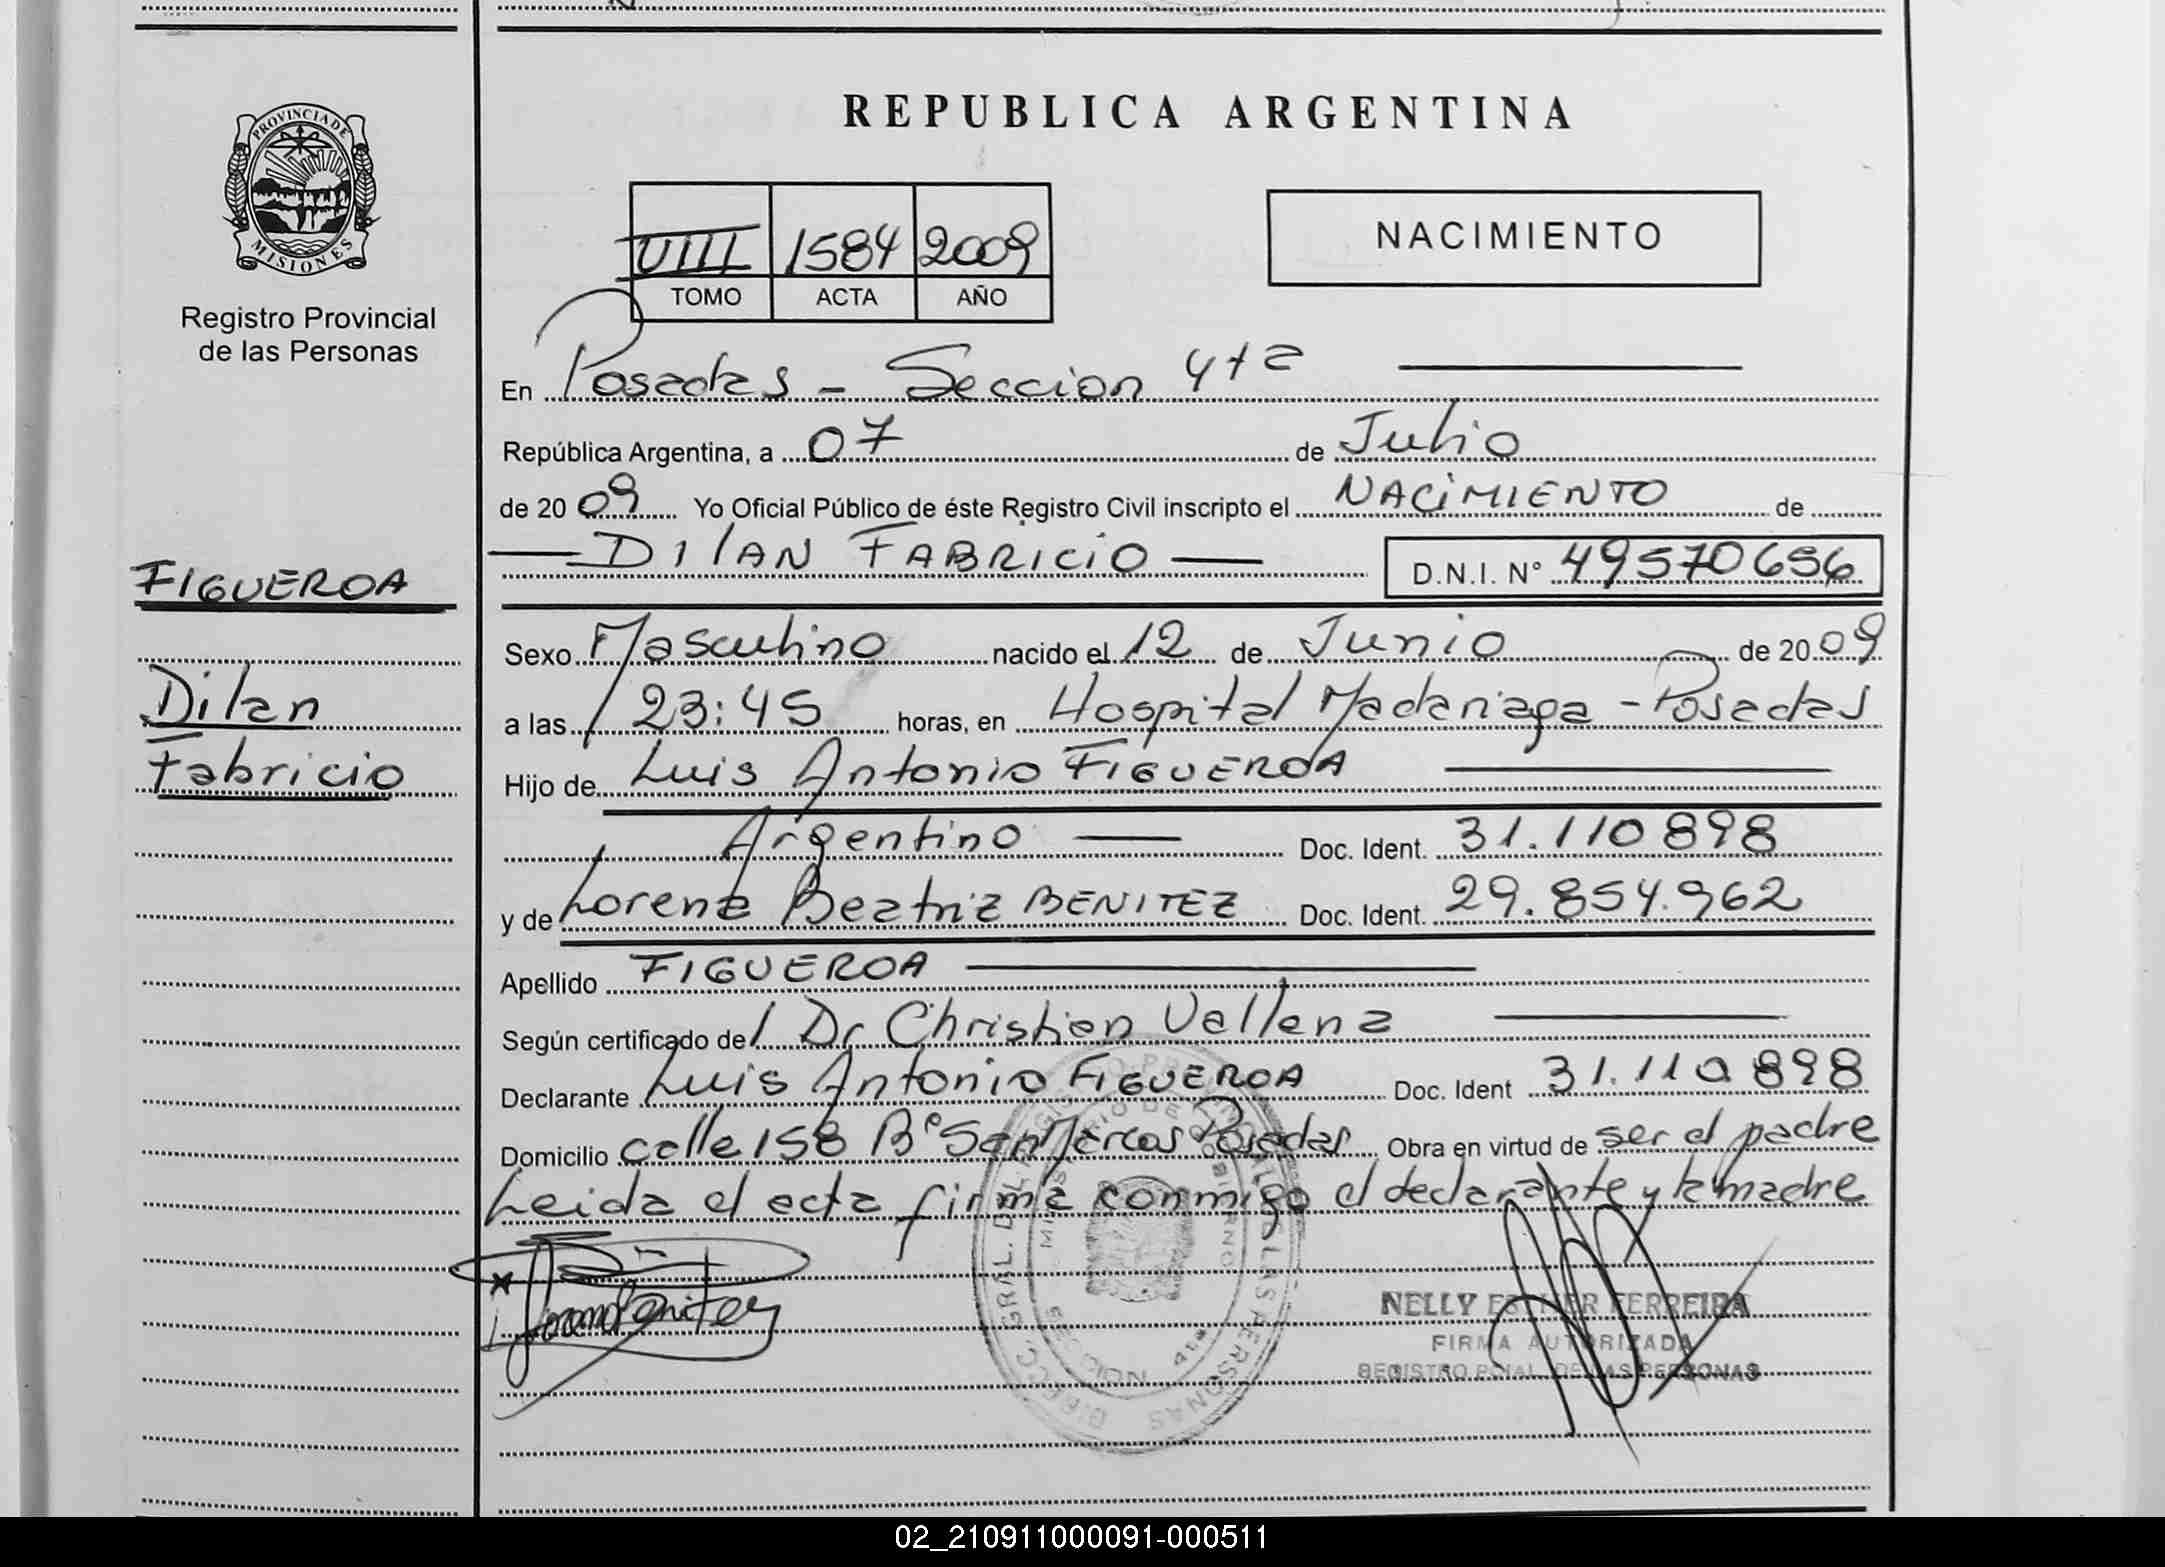 REPUBLICA ARGENTINA
PROVINCIA DE MISIONES
Registro Provincial
de las Personas
VIII 1584 2009
TOMO ACTA AÑO
NACIMIENTO
En Posadas - Seccion 4ta
República Argentina, a 07 de Julio
de 2009 Yo Oficial Público de éste Registro Civil inscripto el NACIMIENTO de
DILAN FABRICIO D.N.I. N° 49570656
FIGUEROA
Dilan
Fabricio
Sexo Masculino nacido el 12 de Junio de 2009
a las 23:45 horas, en Hospital Madariaga - Posadas
Hijo de Luis Antonio FIGUEROA
Argentino Doc. Ident. 31.110898
y de Lorena Beatriz BENITEZ Doc. Ident. 29.854.962
Apellido FIGUEROA
Según certificado de Dr Christian Vallena
Declarante Luis Antonio FIGUEROA Doc. Ident 31.110898
Domicilio calle 158 B° San Marcos Posadas Obra en virtud de ser el padre
Leida el acta firma conmigo el declarante y la madre
NELLY ESTHER FERREIRA
FIRMA AUTORIZADA
REGISTRO PCIAL. DE LAS PERSONAS
DIRECC. GRAL. DEL REGISTRO PROVINCIAL DE LAS PERSONAS
MINISTERIO DE GOBIERNO
MISIONES
02_210911000091-000511